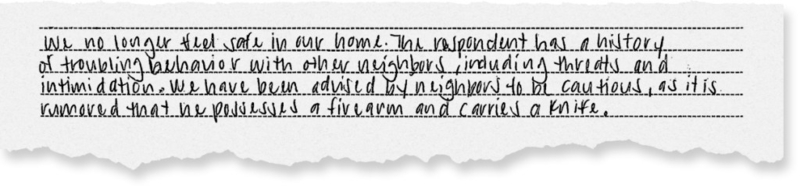 We no longer feel safe in our home. The respondent has a history
of troubling behavior with other neighbors, including threats and
intimidation. We have been advised by neighbors to be cautious, as it is
rumored that he possesses a firearm and carries a knife.